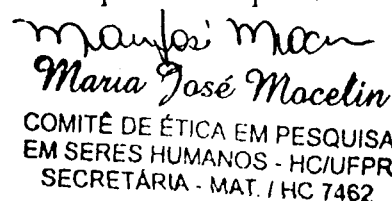 Maria José Mocelin
COMITÊ DE ÉTICA EM PESQUISA
EM SERES HUMANOS - HC/UFPR
SECRETÁRIA - MAT. / HC 7462